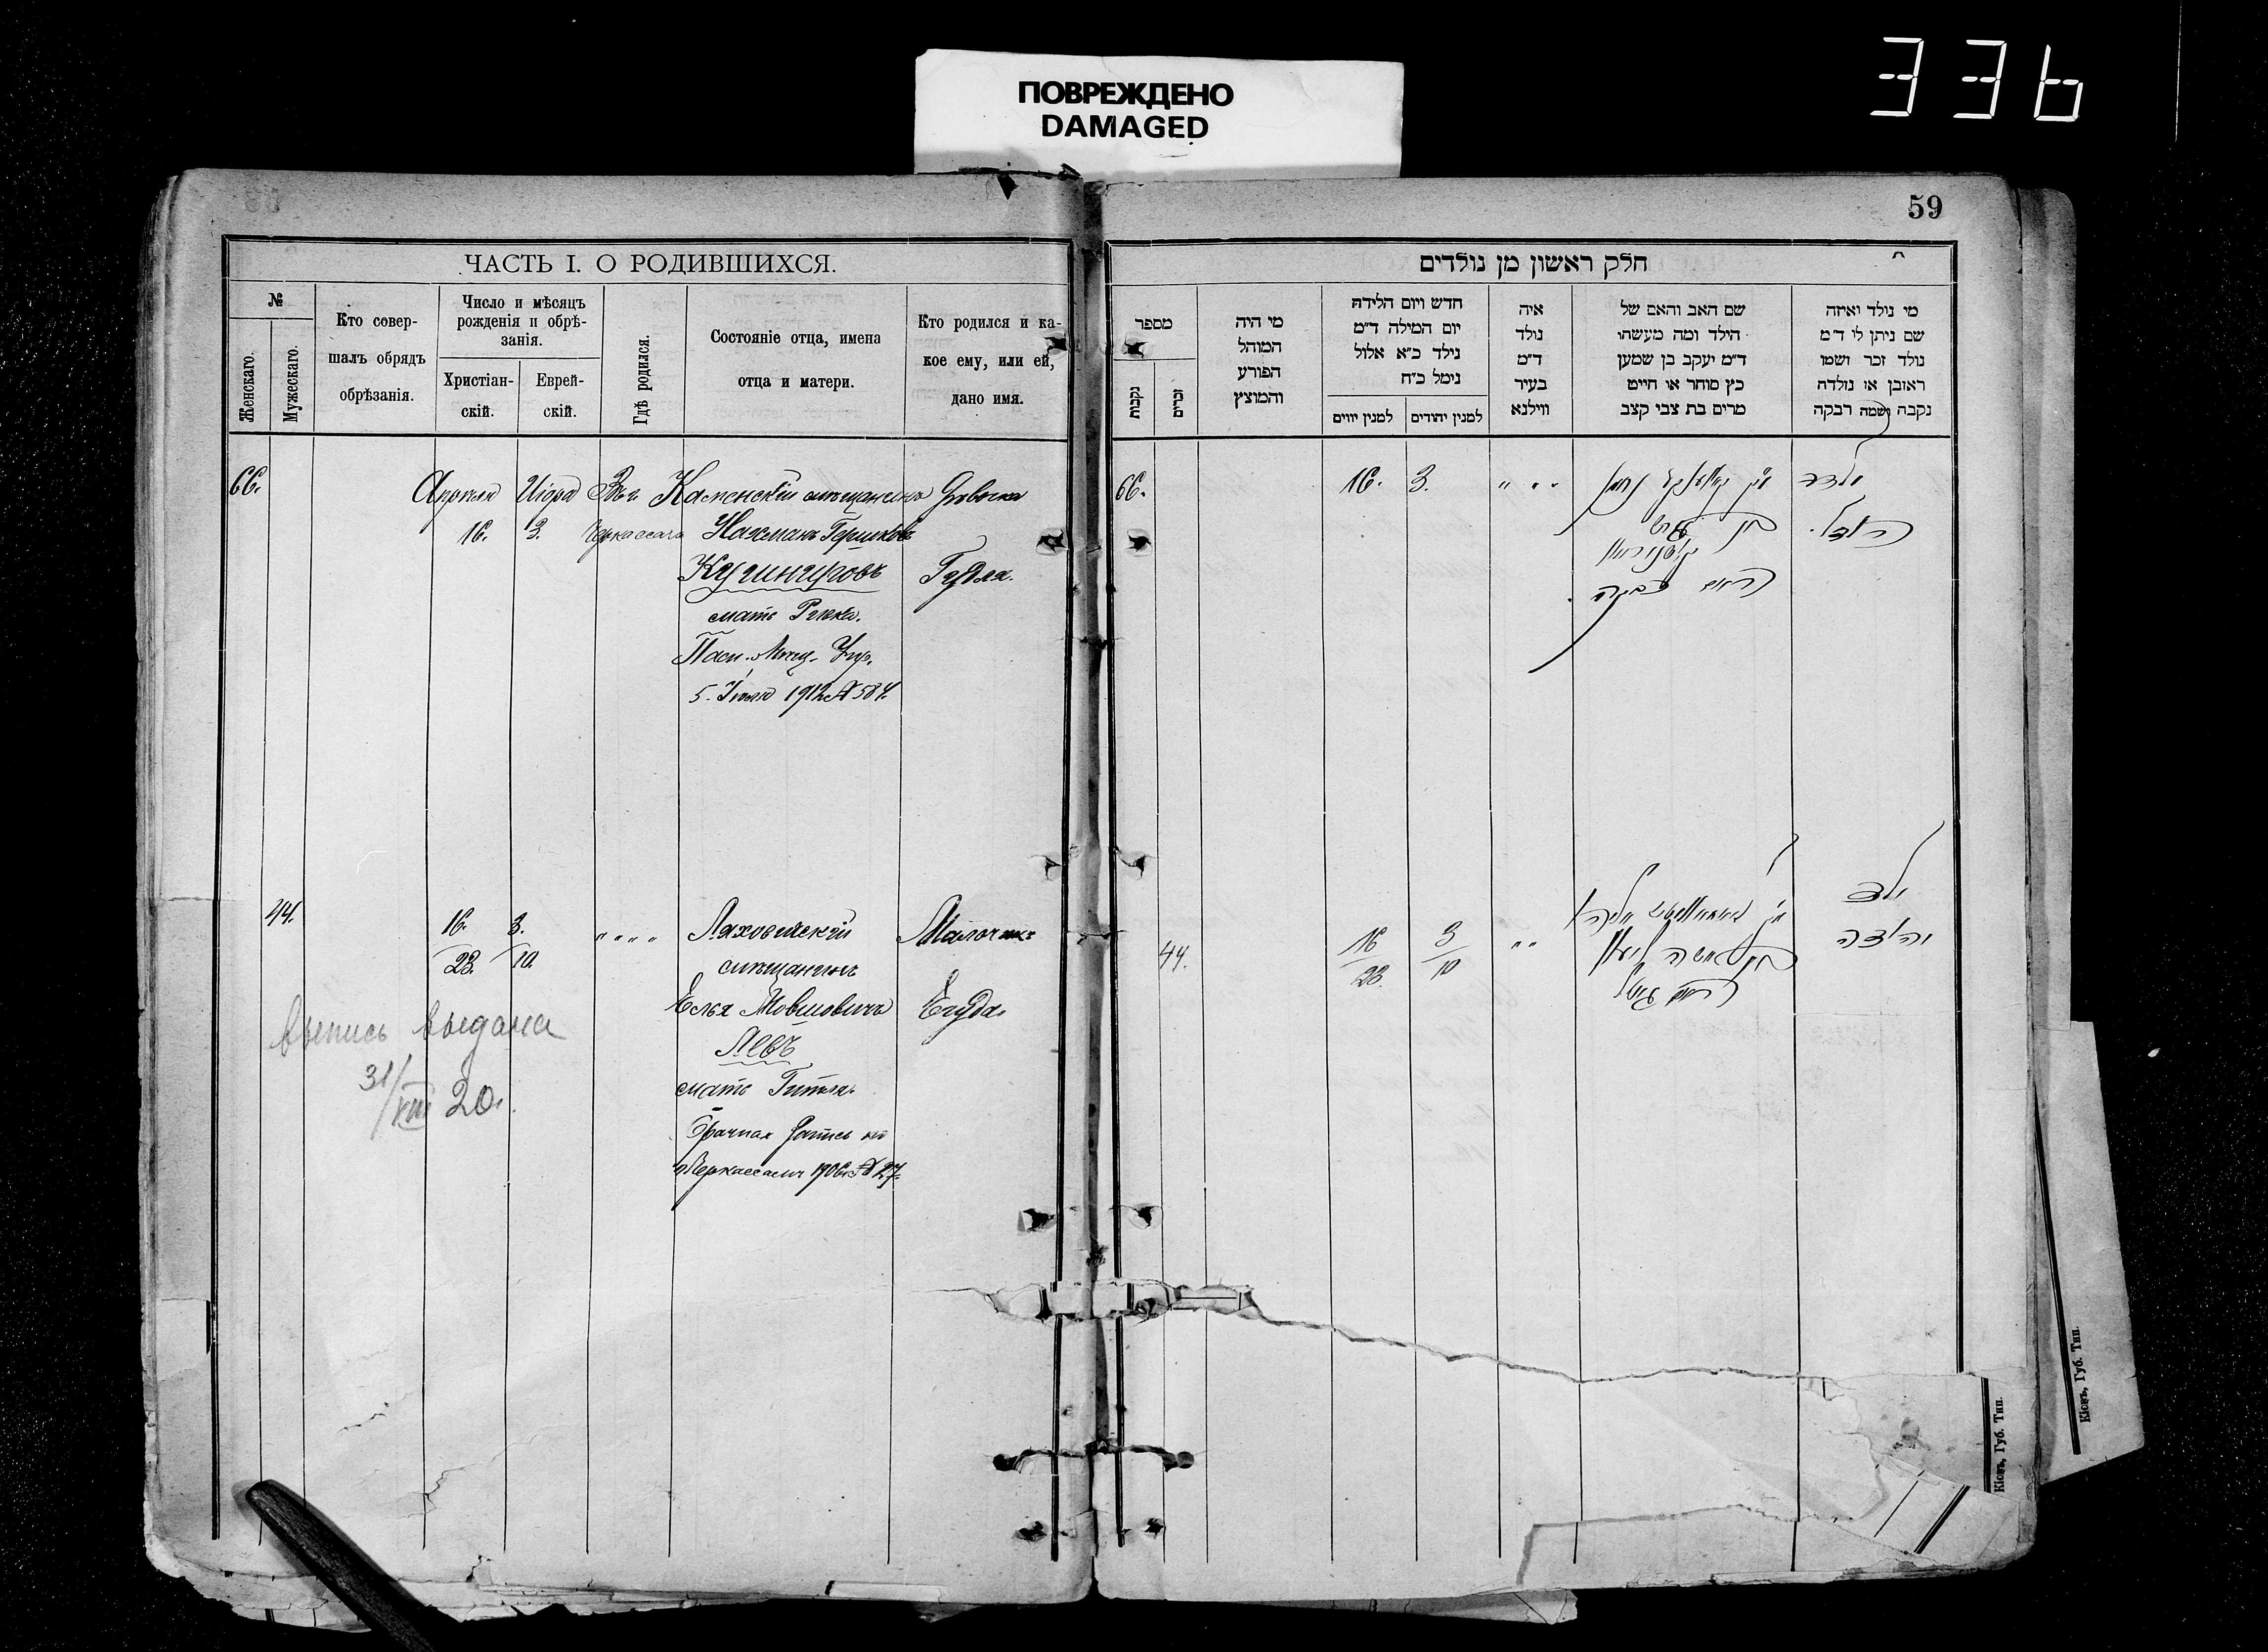 ПОВРЕЖДЕНО
DAMAGED
336
59
ЧАСТЬ I. О РОДИВШИХСЯ.
№
Женскаго.
Мужескаго.
Кто совер-
шалъ обрядъ
обрѣзанія.
Число и мѣсяцъ
рожденія и обрѣ-
занія.
Христіан-
скій.
Еврей-
скій.
Гдѣ родился.
Состояніе отца, имена
отца и матери.
Кто родился и ка-
кое ему, или ей,
дано имя.
66.
Апрѣля
16.
Иіора
3.
Въ г.
Черкассахъ
Каменскій мѣщанинъ
Нахманъ Гершковъ
Кушнировъ
мать Ривка.
Пасп. Мѣщ. Упр.
5. Іюля 1912 № 584.
Дѣвочка
Гудля.
44.
16. 3.
23. 10.
" " " "
мѣщанинъ
Еля Мовшовичъ
Левъ
мать Гитля.
Брачная запись въ
Черкассахъ 1906 г. № 27.
Мальчикъ
Егуда.
выпись выдана
31/VIII 20 г.
חלק ראשון מן נולדים
מספר
נקבות
זכרים
מי היה
המוהל
הפורע
והמוצץ
חדש ויום הלידה
יום המילה ד״מ
נילד כ״א אלול
נימל כ״ח
למנין יווים
למנין יהודים
איה
נולד
ד״מ
בעיר
ווילנא
שם האב והאם של
הילד ומה מעשהו
ד״מ יעקב בן שמען
כץ סוחר או חייט
מרים בת צבי קצב
מי נולד ואיזה
שם ניתן לי ד״מ
נולד זכר ושמו
ראובן או נולדה
נקבה ושמה רבקה
66.
16.
3.
" " "
נחמן
בן הירש
קושנירוב
האם רבקה
ילדה
הודל.
44.
16
23.
3
10
" "
האם גיטל
ילד
יהודה
Кіевъ, Губ. Тип.
Кіевъ, Губ. Тип.